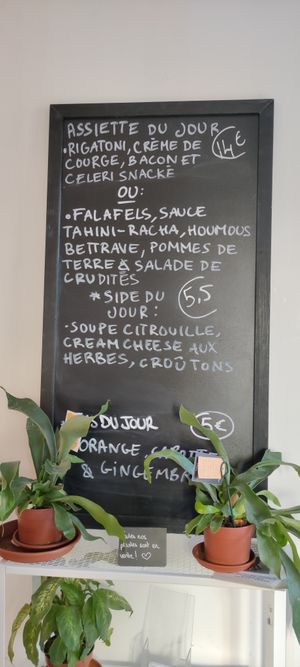 ASSIETTE DU JOUR
• RIGATONI, CRÈME DE 14€
COURGE, BACON ET
CELERI SNACKÉ
OU:
• FALAFELS, SAUCE
TAHINI-RACHA, HOUMOUS
BETTRAVE, POMMES DE
TERRE & SALADE DE
CRUDITÉS
* SIDE DU 5,5
JOUR:
- SOUPE CITROUILLE,
CREAM CHEESE AUX
HERBES, CROÛTONS
DU JOUR 5€
ORANGE,
& GINGEMBR
nos
plantes sont en
vente! ♡